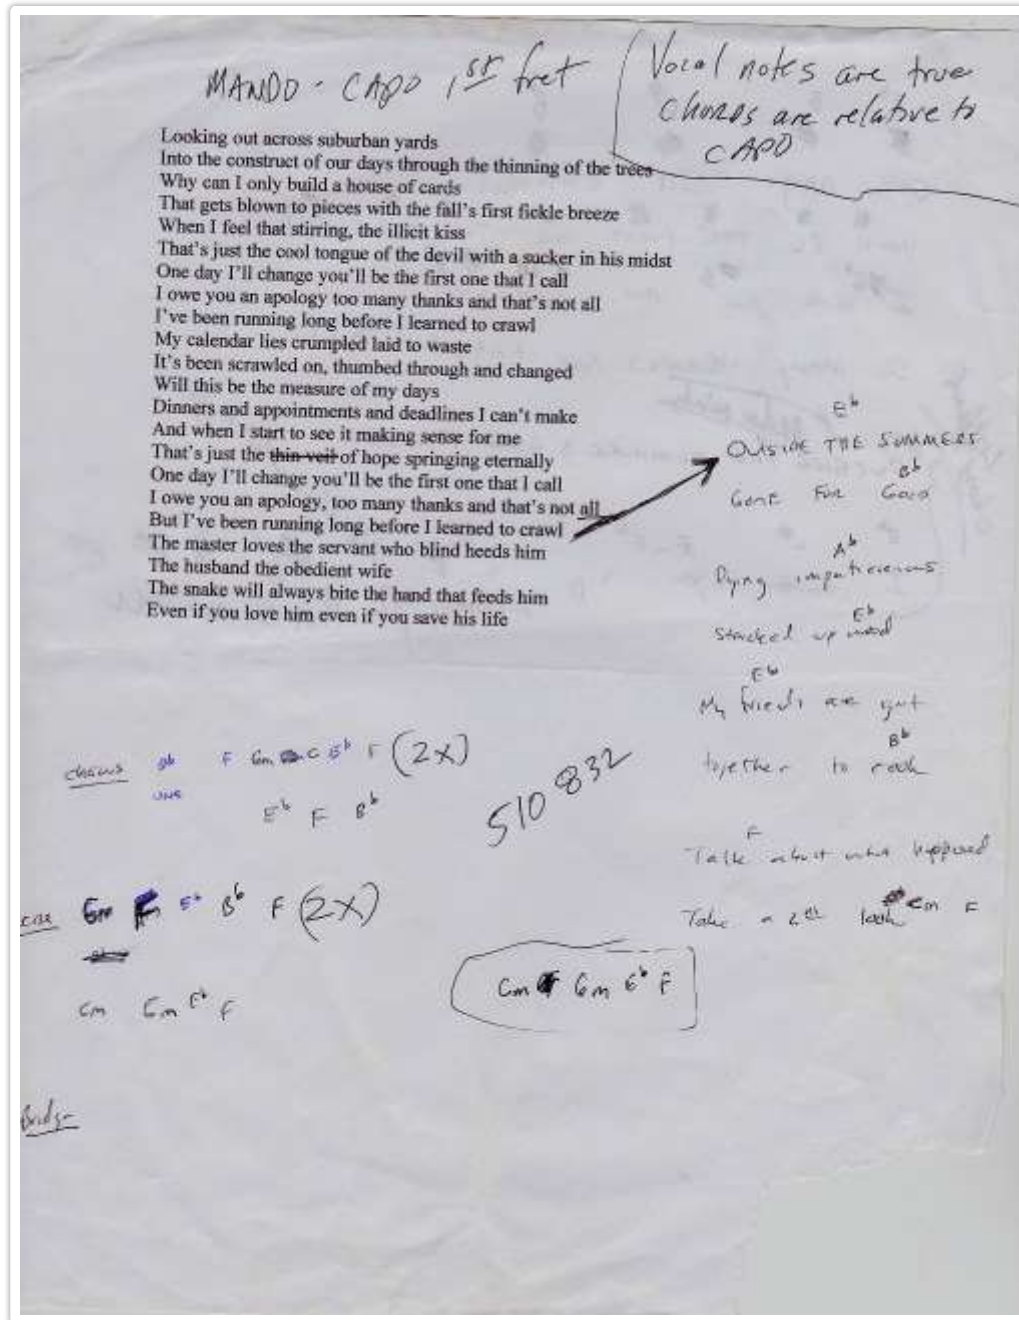 MANDO - CAPO 1st fret
Vocal notes are true
CHORDS are relative to
CAPO
Looking out across suburban yards
Into the construct of our days through the thinning of the trees
Why can I only build a house of cards
That gets blown to pieces with the fall's first fickle breeze
When I feel that stirring, the illicit kiss
That's just the cool tongue of the devil with a sucker in his midst
One day I'll change you'll be the first one that I call
I owe you an apology too many thanks and that's not all
I've been running long before I learned to crawl
My calendar lies crumpled laid to waste
It's been scrawled on, thumbed through and changed
Will this be the measure of my days
Dinners and appointments and deadlines I can't make
And when I start to see it making sense for me
That's just the thin veil of hope springing eternally
One day I'll change you'll be the first one that I call
I owe you an apology, too many thanks and that's not all
But I've been running long before I learned to crawl
The master loves the servant who blind heeds him
The husband the obedient wife
The snake will always bite the hand that feeds him
Even if you love him even if you save his life
Eb
OUTSIDE THE SUMMERS
Bb
GONE FOR GOOD
Ab
Dying impatiens
Eb
stacked up wood
Eb
My friends are
Bb
together to
F
Talk about what happened
Take a 2nd look Cm F
chorus Bb F Gm C Eb F (2X)
Eb F Bb
Gm Eb Bb F (2X)
Cm Gm Eb F
510 832
Cm Gm Eb F
Bridge